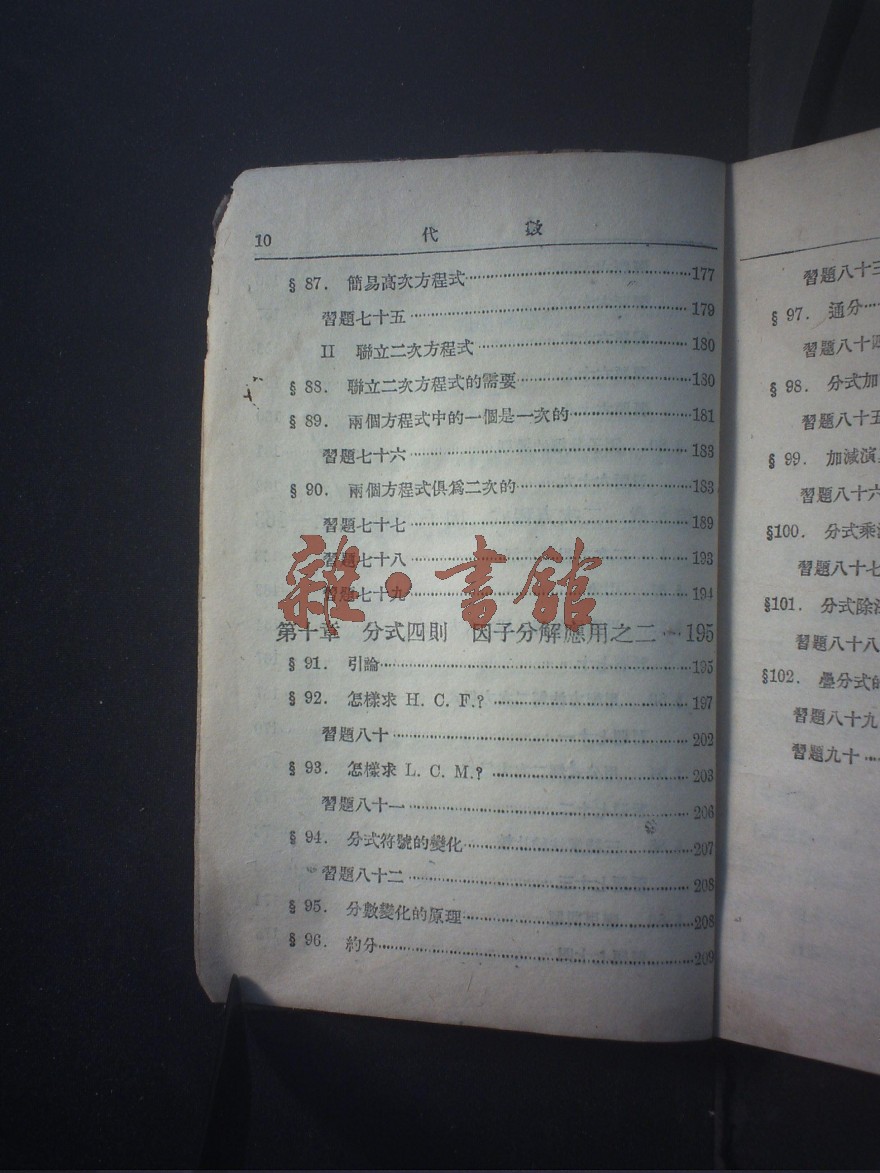 10 代 數
§ 87. 簡易高次方程式 177
習題七十五 179
II 聯立二次方程式 180
§ 88. 聯立二次方程式的需要 180
§ 89. 兩個方程式中的一個是一次的 181
習題七十六 183
§ 90. 兩個方程式俱爲二次的 183
習題七十七 189
習題七十八 193
習題七十九 194
雜·書館
第十章 分式四則 因子分解應用之二 195
§ 91. 引論 195
§ 92. 怎樣求 H. C. F.? 197
習題八十 202
§ 93. 怎樣求 L. C. M.? 203
習題八十一 206
§ 94. 分式符號的變化 207
習題八十二 208
§ 95. 分數變化的原理 208
§ 96. 約分 209
習題八十三
§ 97. 通分
習題八十四
§ 98. 分式加
習題八十五
§ 99. 加減演
習題八十六
§100. 分式乘
習題八十七
§101. 分式除
習題八十八
§102. 疊分式的
習題八十九
習題九十